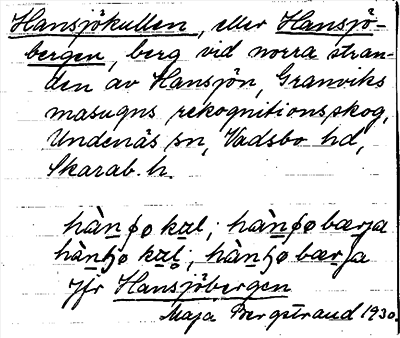 Hansjökullen, eller Hansjö-
bergen, berg vid norra stran-
den av Hansjön, Granviks
masugns rekognitionsskog,
Undenäs sn, Vadsbo hd,
Skarab. h.
jfr Hansjöbergen
Maja Bergstrand 1930.